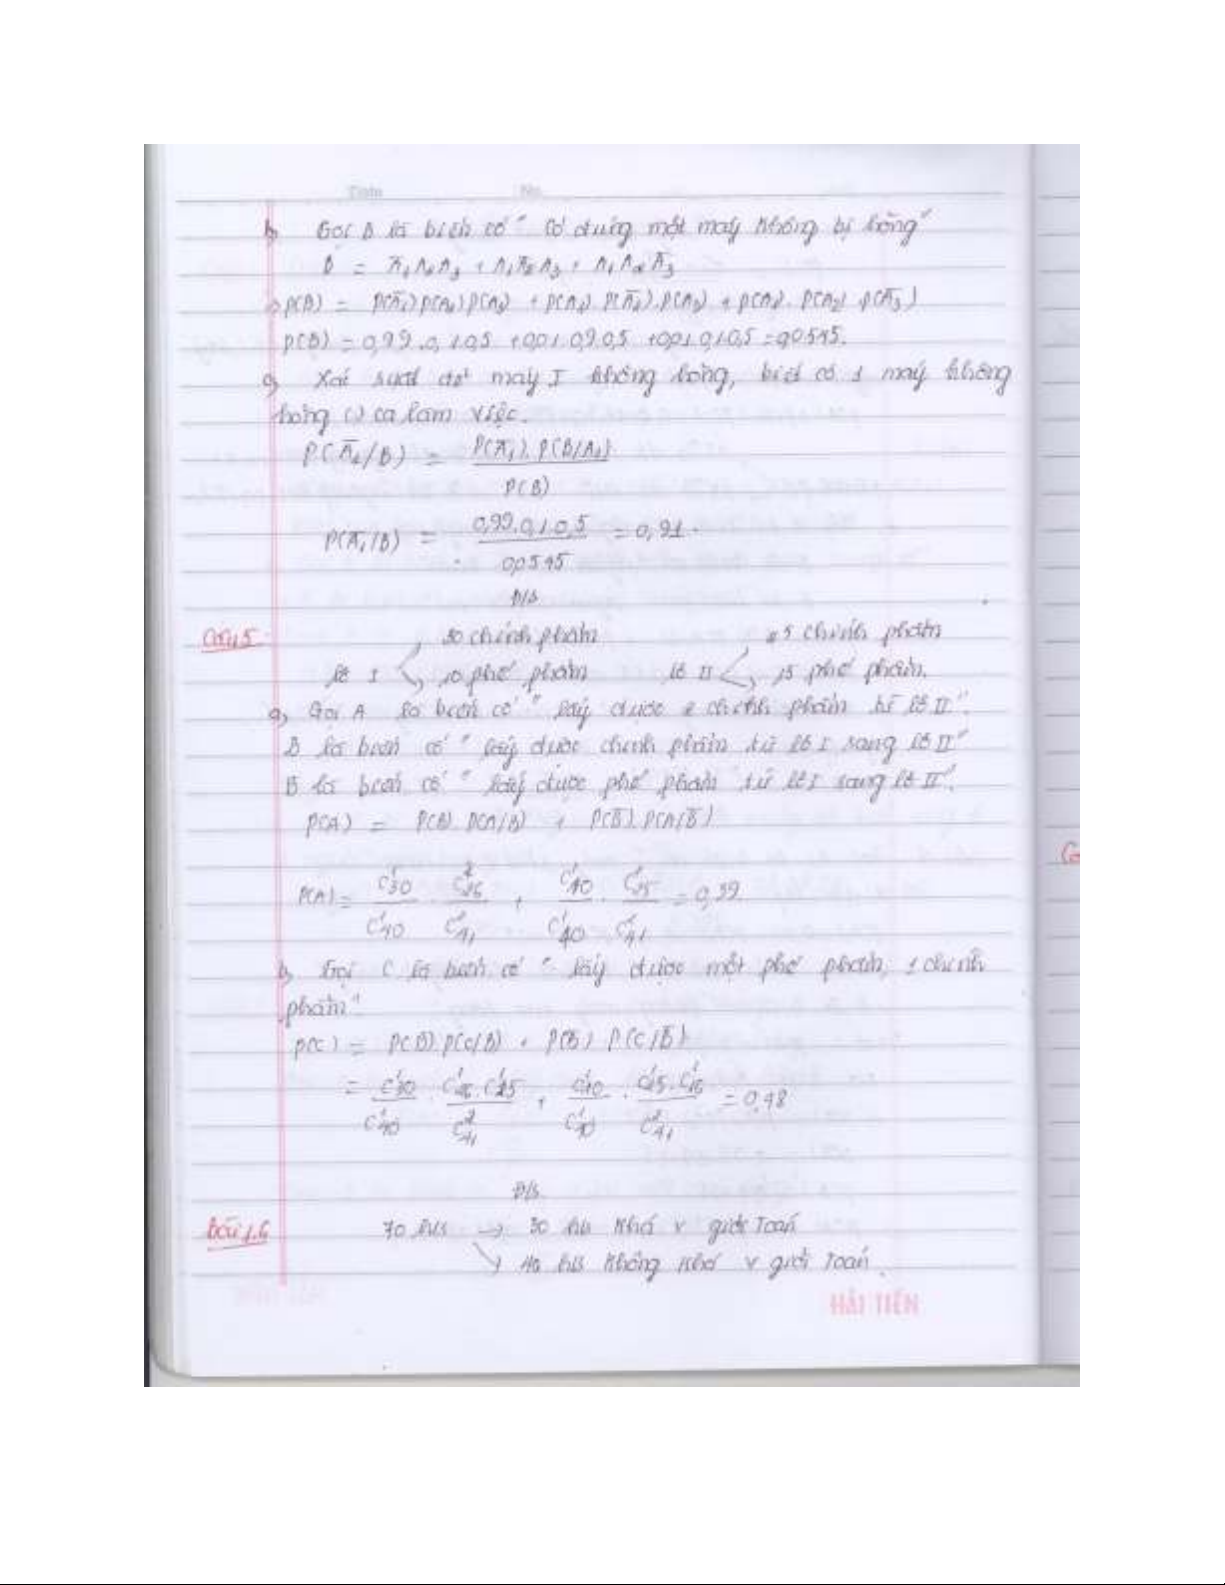 b, Gọi B là biến cố "Có đúng một máy không bị hỏng"
B = A̅₁A₂A₃ + A₁A̅₂A₃ + A₁A₂A̅₃
P(B) = P(A̅₁)P(A₂)P(A₃) + P(A₁).P(A̅₂).P(A₃) + P(A₁).P(A₂).P(A̅₃)
P(B) = 0,99.0,1.0,5 + 0,01.0,9.0,5 + 0,01.0,1.0,5 = 0,0545.
c, Xác suất để máy I không hỏng, biết có 1 máy không
hỏng ca làm việc.
P(A̅₁/B) = P(A̅₁).P(B/A₁)
P(B)
P(A̅₁/B) = 0,99.0,1.0,5 = 0,91.
0,0545
Đ/s
30 chính phẩm 25 chính phẩm
lô I 10 phế phẩm lô II 15 phế phẩm.
a, Gọi A là biến cố "lấy được 2 chính phẩm từ lô II".
B là biến cố "lấy được chính phẩm từ lô I sang lô II"
B̅ là biến cố "lấy được phế phẩm từ lô I sang lô II".
P(A) = P(B).P(A/B) + P(B̅).P(A/B̅)
P(A) = C¹₃₀ . C²₂₆ + C¹₁₀ . C²₂₅ = 0,39
C¹₄₀ C²₄₁ C¹₄₀ C²₄₁
b, Gọi C là biến cố "lấy được một phế phẩm, 1 chính
phẩm"
P(C) = P(B).P(C/B) + P(B̅).P(C/B̅)
= C¹₃₀ . C¹₂₆.C¹₁₅ + C¹₁₀ . C¹₂₅.C¹₁₆ = 0,48
C¹₄₀ C²₄₁ C¹₄₀ C²₄₁
Đ/s
Bài 1.6 70 hs → 30 hs khá v giỏi Toán
40 hs không khá v giỏi Toán.
HẢI TIẾN